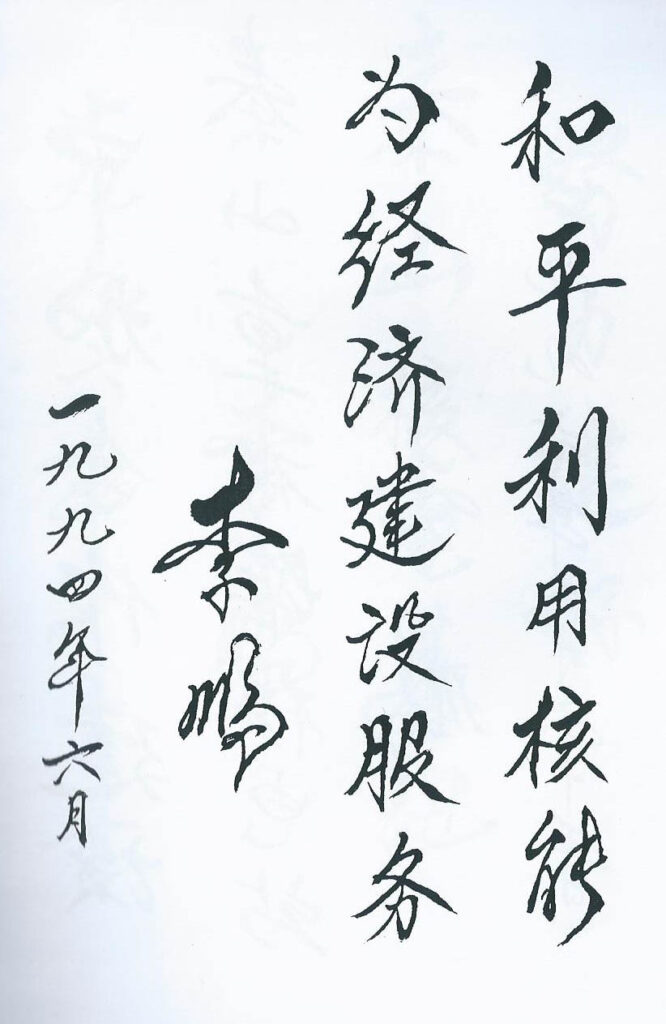 和平利用核能
为经济建设服务
李鹏
一九九四年六月